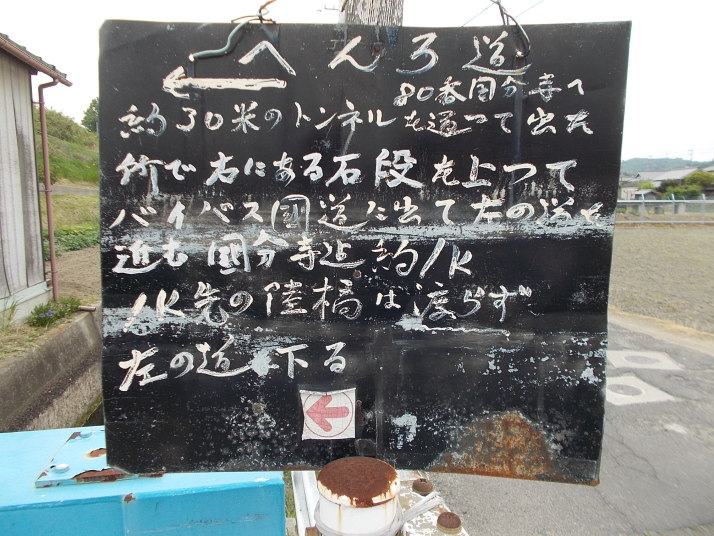 へんろ道
80番国分寺へ
約30米のトンネルを通つて出た
所で右にある石段を上つて
バイパス国道に出て左の道を
進む国分寺迠約1K
1K先の陸橋は渡らず
左の道を下る